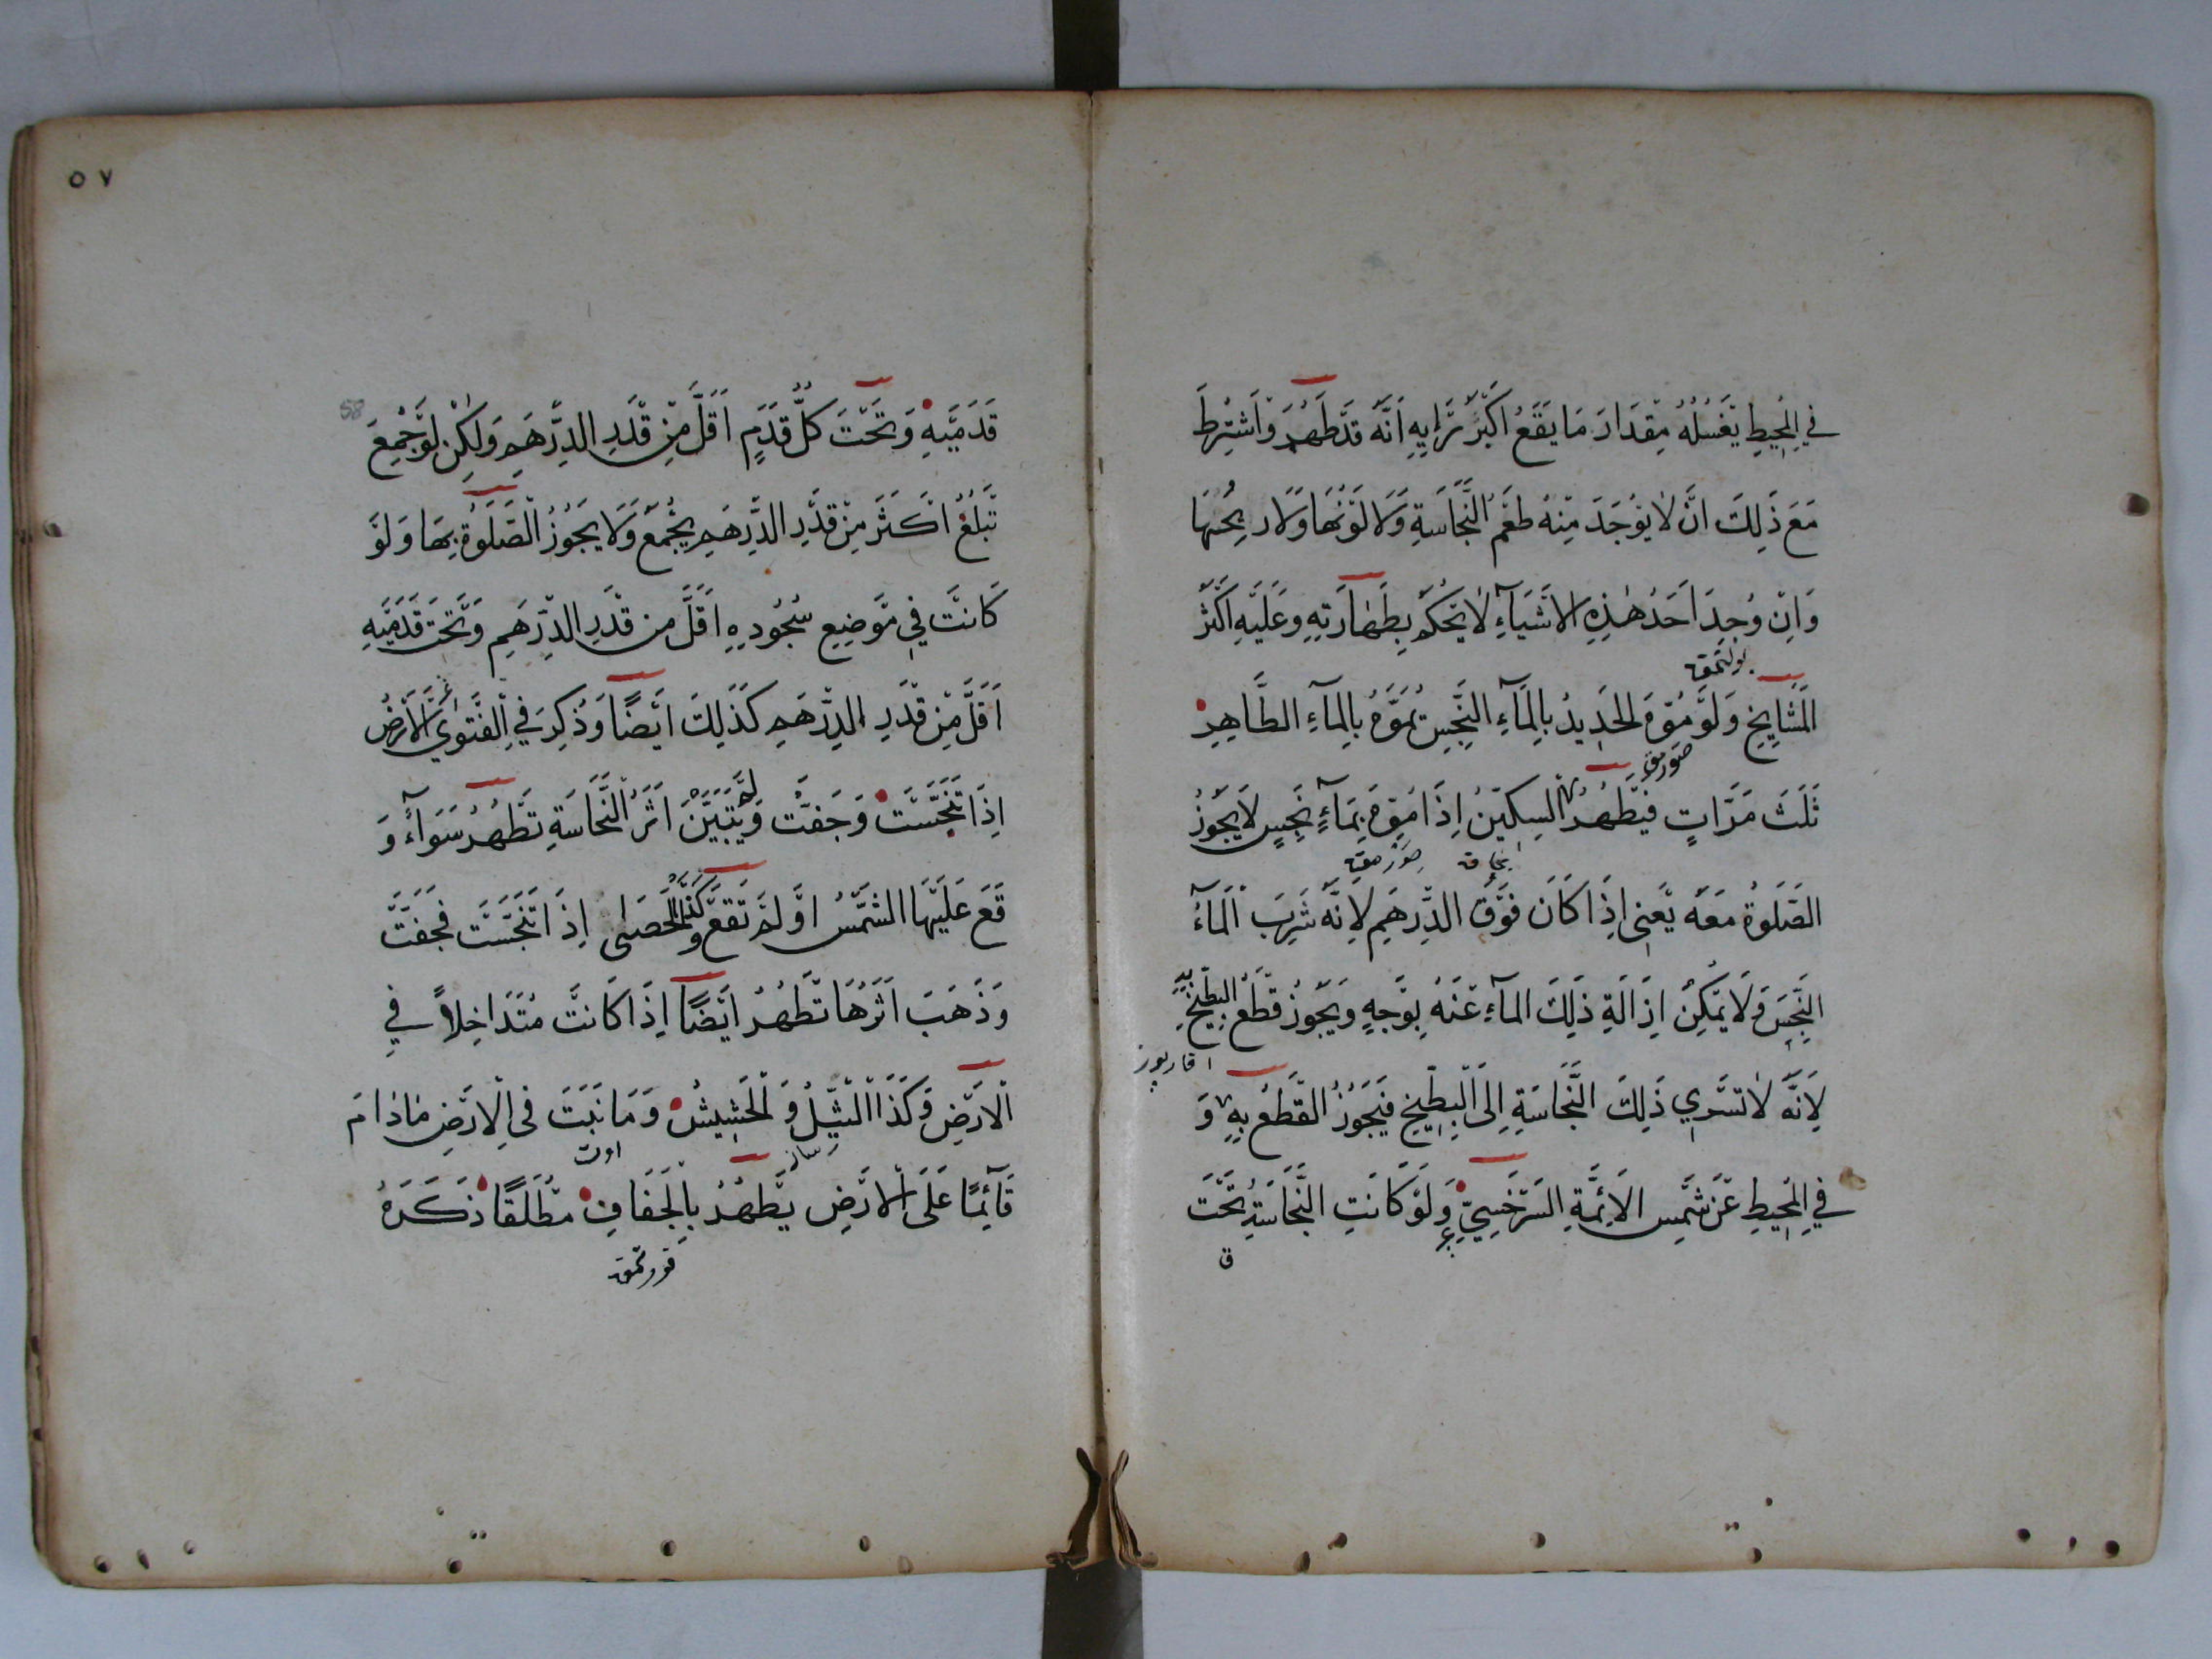 في المحيط يغسله مقدار ما يقع اكبر رايه انه قد طهر واشترط
مع ذلك ان لا يوجد منه طعم النجاسة ولا لونها ولا ريحها
وان وجد احد هذه الاشياء لا يحكم بطهارته وعليه اكثر
المشايخ ولو موّه الحديد بالماء النجس يموّه بالماء الطاهر
ثلث مرات فيطهر السكين اذا موّه بماء نجس لا يجوز
الصلوة معه يعنى اذا كان فوق الدرهم لانه شرب الماء
النجس ولا يمكن ازالة ذلك الماء عنه بوجه ويجوز قطع البطيخ به
لانه لا تسري ذلك النجاسة الى البطيخ فيجوز القطع به و
في المحيط عن شمس الائمة السرخسي ولو كانت النجاسة تحت
٥٧
58
قدميه وتحت كل قدم اقل من قدر الدرهم ولكن لو جمع
تبلغ اكثر من قدر الدرهم يجمع ولا يجوز الصلوة بها ولو
كانت في موضع سجوده اقل من قدر الدرهم وتحت قدميه
اقل من قدر الدرهم كذلك ايضا وذكر في الفتوى الارض
اذا تنجست وجفت ولم يتبين اثر النجاسة تطهر سواء و
قع عليها الشمس او لم تقع وكذا الحصى اذا تنجست فجفت
وذهب اثرها تطهر ايضا اذا كانت متداخلا في
الارض وكذا الثيل والحشيش وما نبت في الارض مادام
اوت
قائما على الارض يطهر بالجفاف مطلقا ذكره
قورتمق